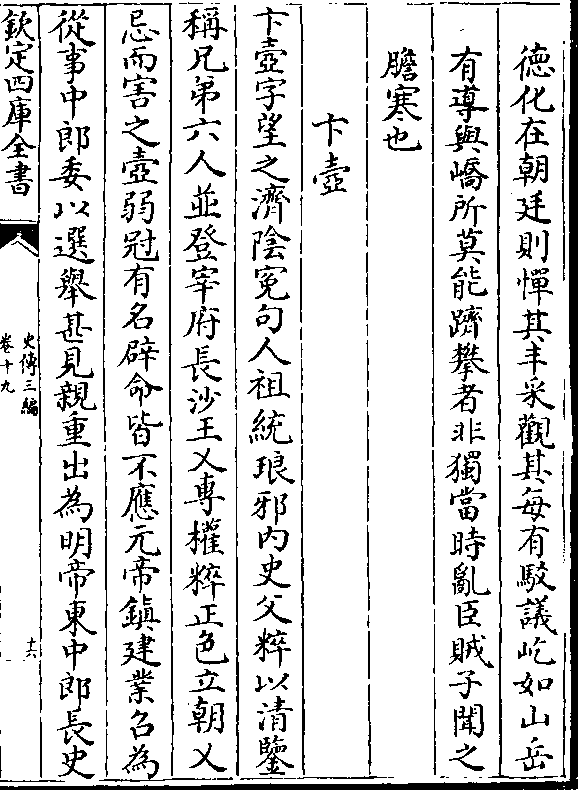 德化在朝廷則憚其丰采觀其每有駁議屹如山岳
有導與嶠所莫能躋攀者非獨當時亂臣賊子聞之
膽寒也
卞壺
卞壺字望之濟陰冤句人祖統琅邪内史父粹以清鑒
稱兄弟六人並登宰府長沙王乂專權粹正色立朝乂
忌而害之壺弱冠有名辟命皆不應元帝鎮建業召為
從事中郎委以選舉甚見親重出為明帝東中郎長史
欽定四庫全書
史傳三編
卷十九
十六